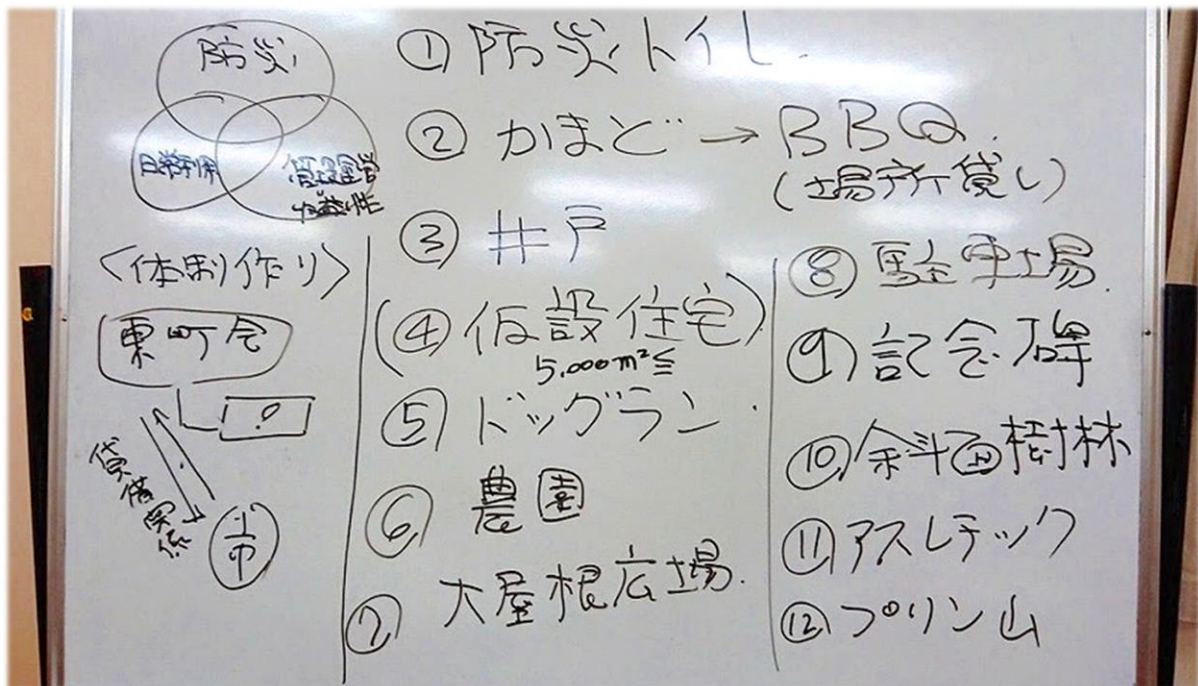 防災
日常利用
<体制作り>
東町会
?
貸借関係
市
① 防災トイレ
② かまど → BBQ
(場所貸し)
③ 井戸
(④ 仮設住宅)
5,000m²≦
⑤ ドッグラン
⑥ 農園
⑦ 大屋根広場
⑧ 駐車場
⑨ 記念碑
⑩ 斜面樹林
⑪ アスレチック
⑫ プリン山